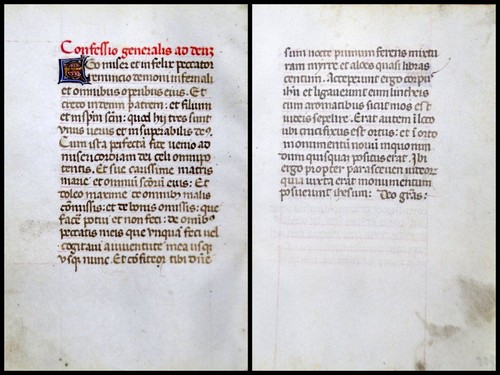 Confessio generalis ad deuz
EGo miser et infelix peccator
renuncio demoni infernali
et omnibus operibus eius. Et
credo in deum patrem: et filium
et in spm scm: quod hij tres sunt
vnus uerus et insuperabilis de9.
Cum ista perfecta fide uenio ad
misericordiam dei celi omnipo
tentis. Et sue carissime matris
marie et omnium sctorum eius: Et
doleo maxime de omnibus malis
comissis: et de bonis omissis: que
face potui et non feci: de omibus
peccatis meis que vnqua feci uel
cogitaui a iuuentute mea usq
vsq nunc. Et confiteor tibi dne
sum nocte primum ferens mixtu
ram myrre et aloes quasi libras
centum. Acceperunt ergo corpus
ihu et ligauerunt eum linteis
cum aromatibus sicut mos est
iudeis sepelire. Erat autem i loco
ubi crucifixus est ortus: et i orto
monumentu nouu in quo non
dum quisquam positus erat. Ibi
ergo propter parasceuen iudeor
quia iuxta erat monumentum
posuerunt ihesum: Deo gras: